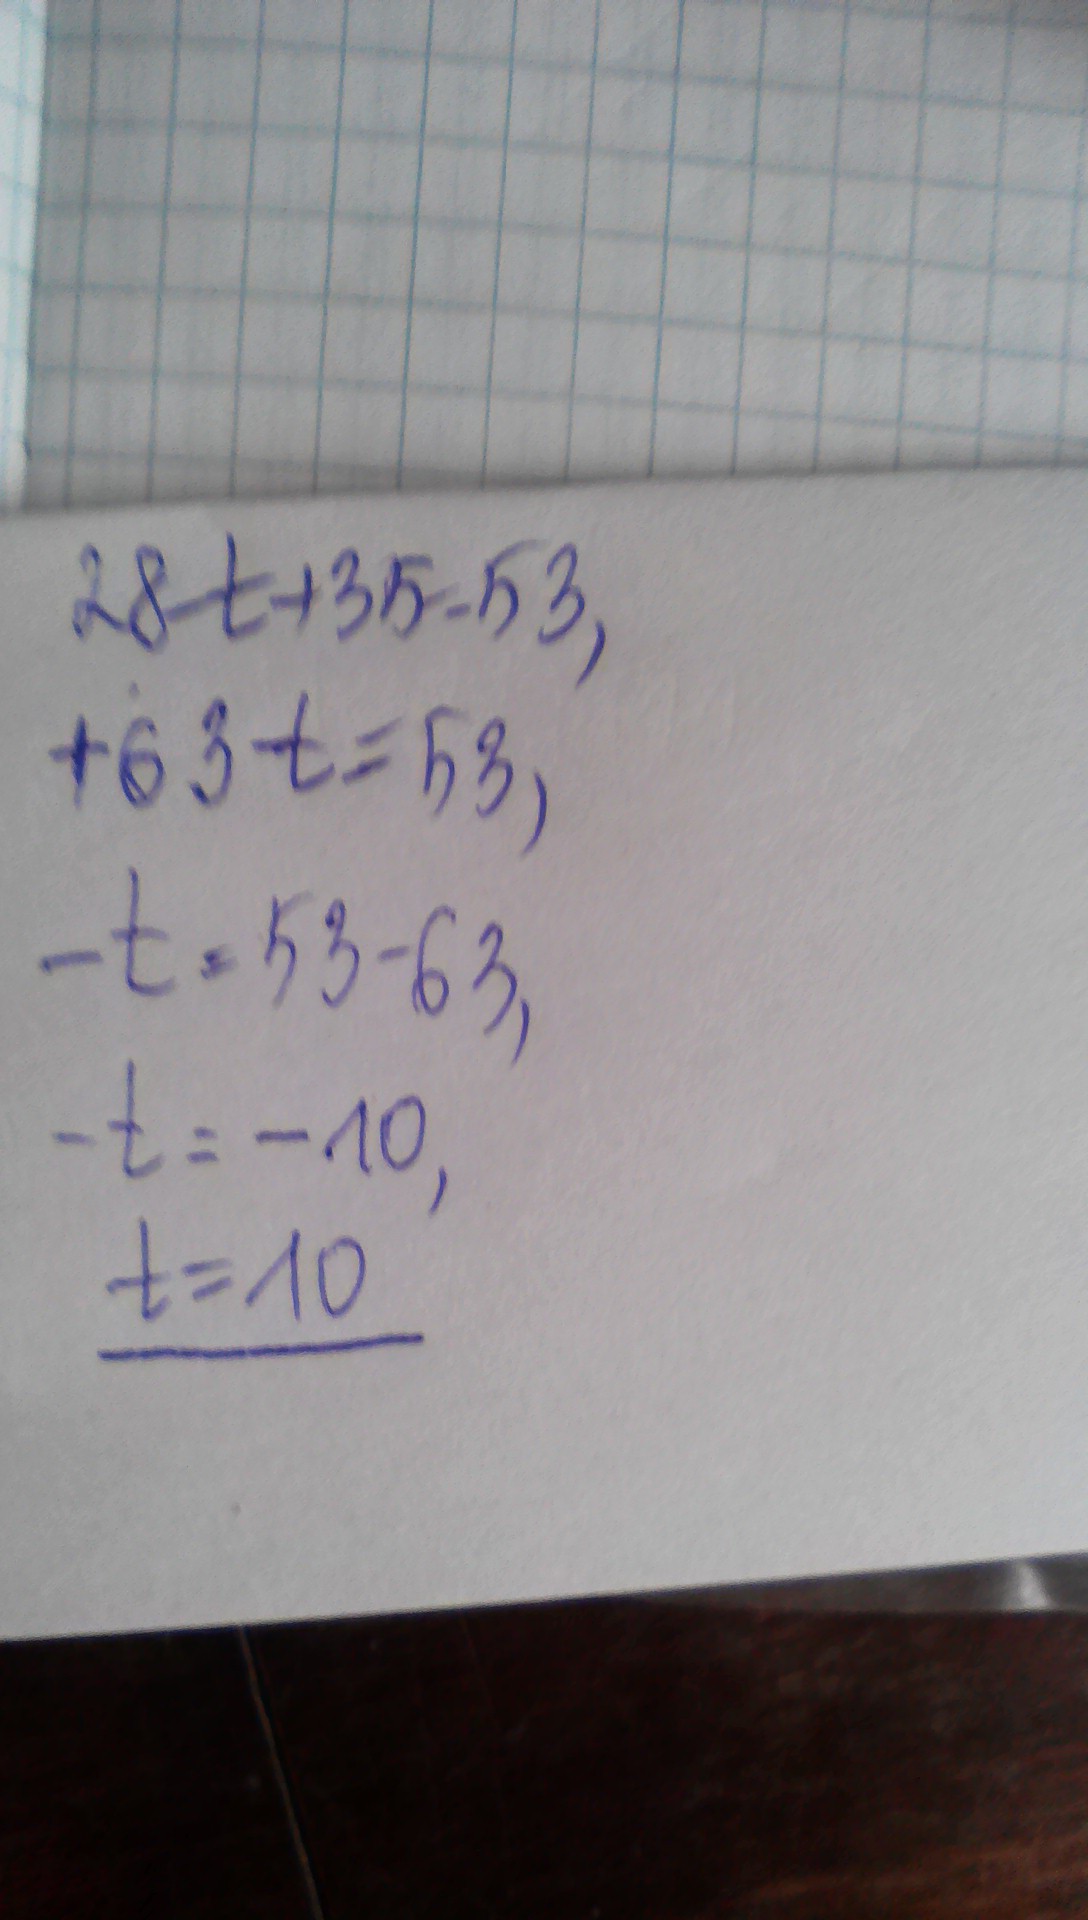 28-t+35=53,
+63-t=53,
-t=53-63,
-t=-10,
t=10